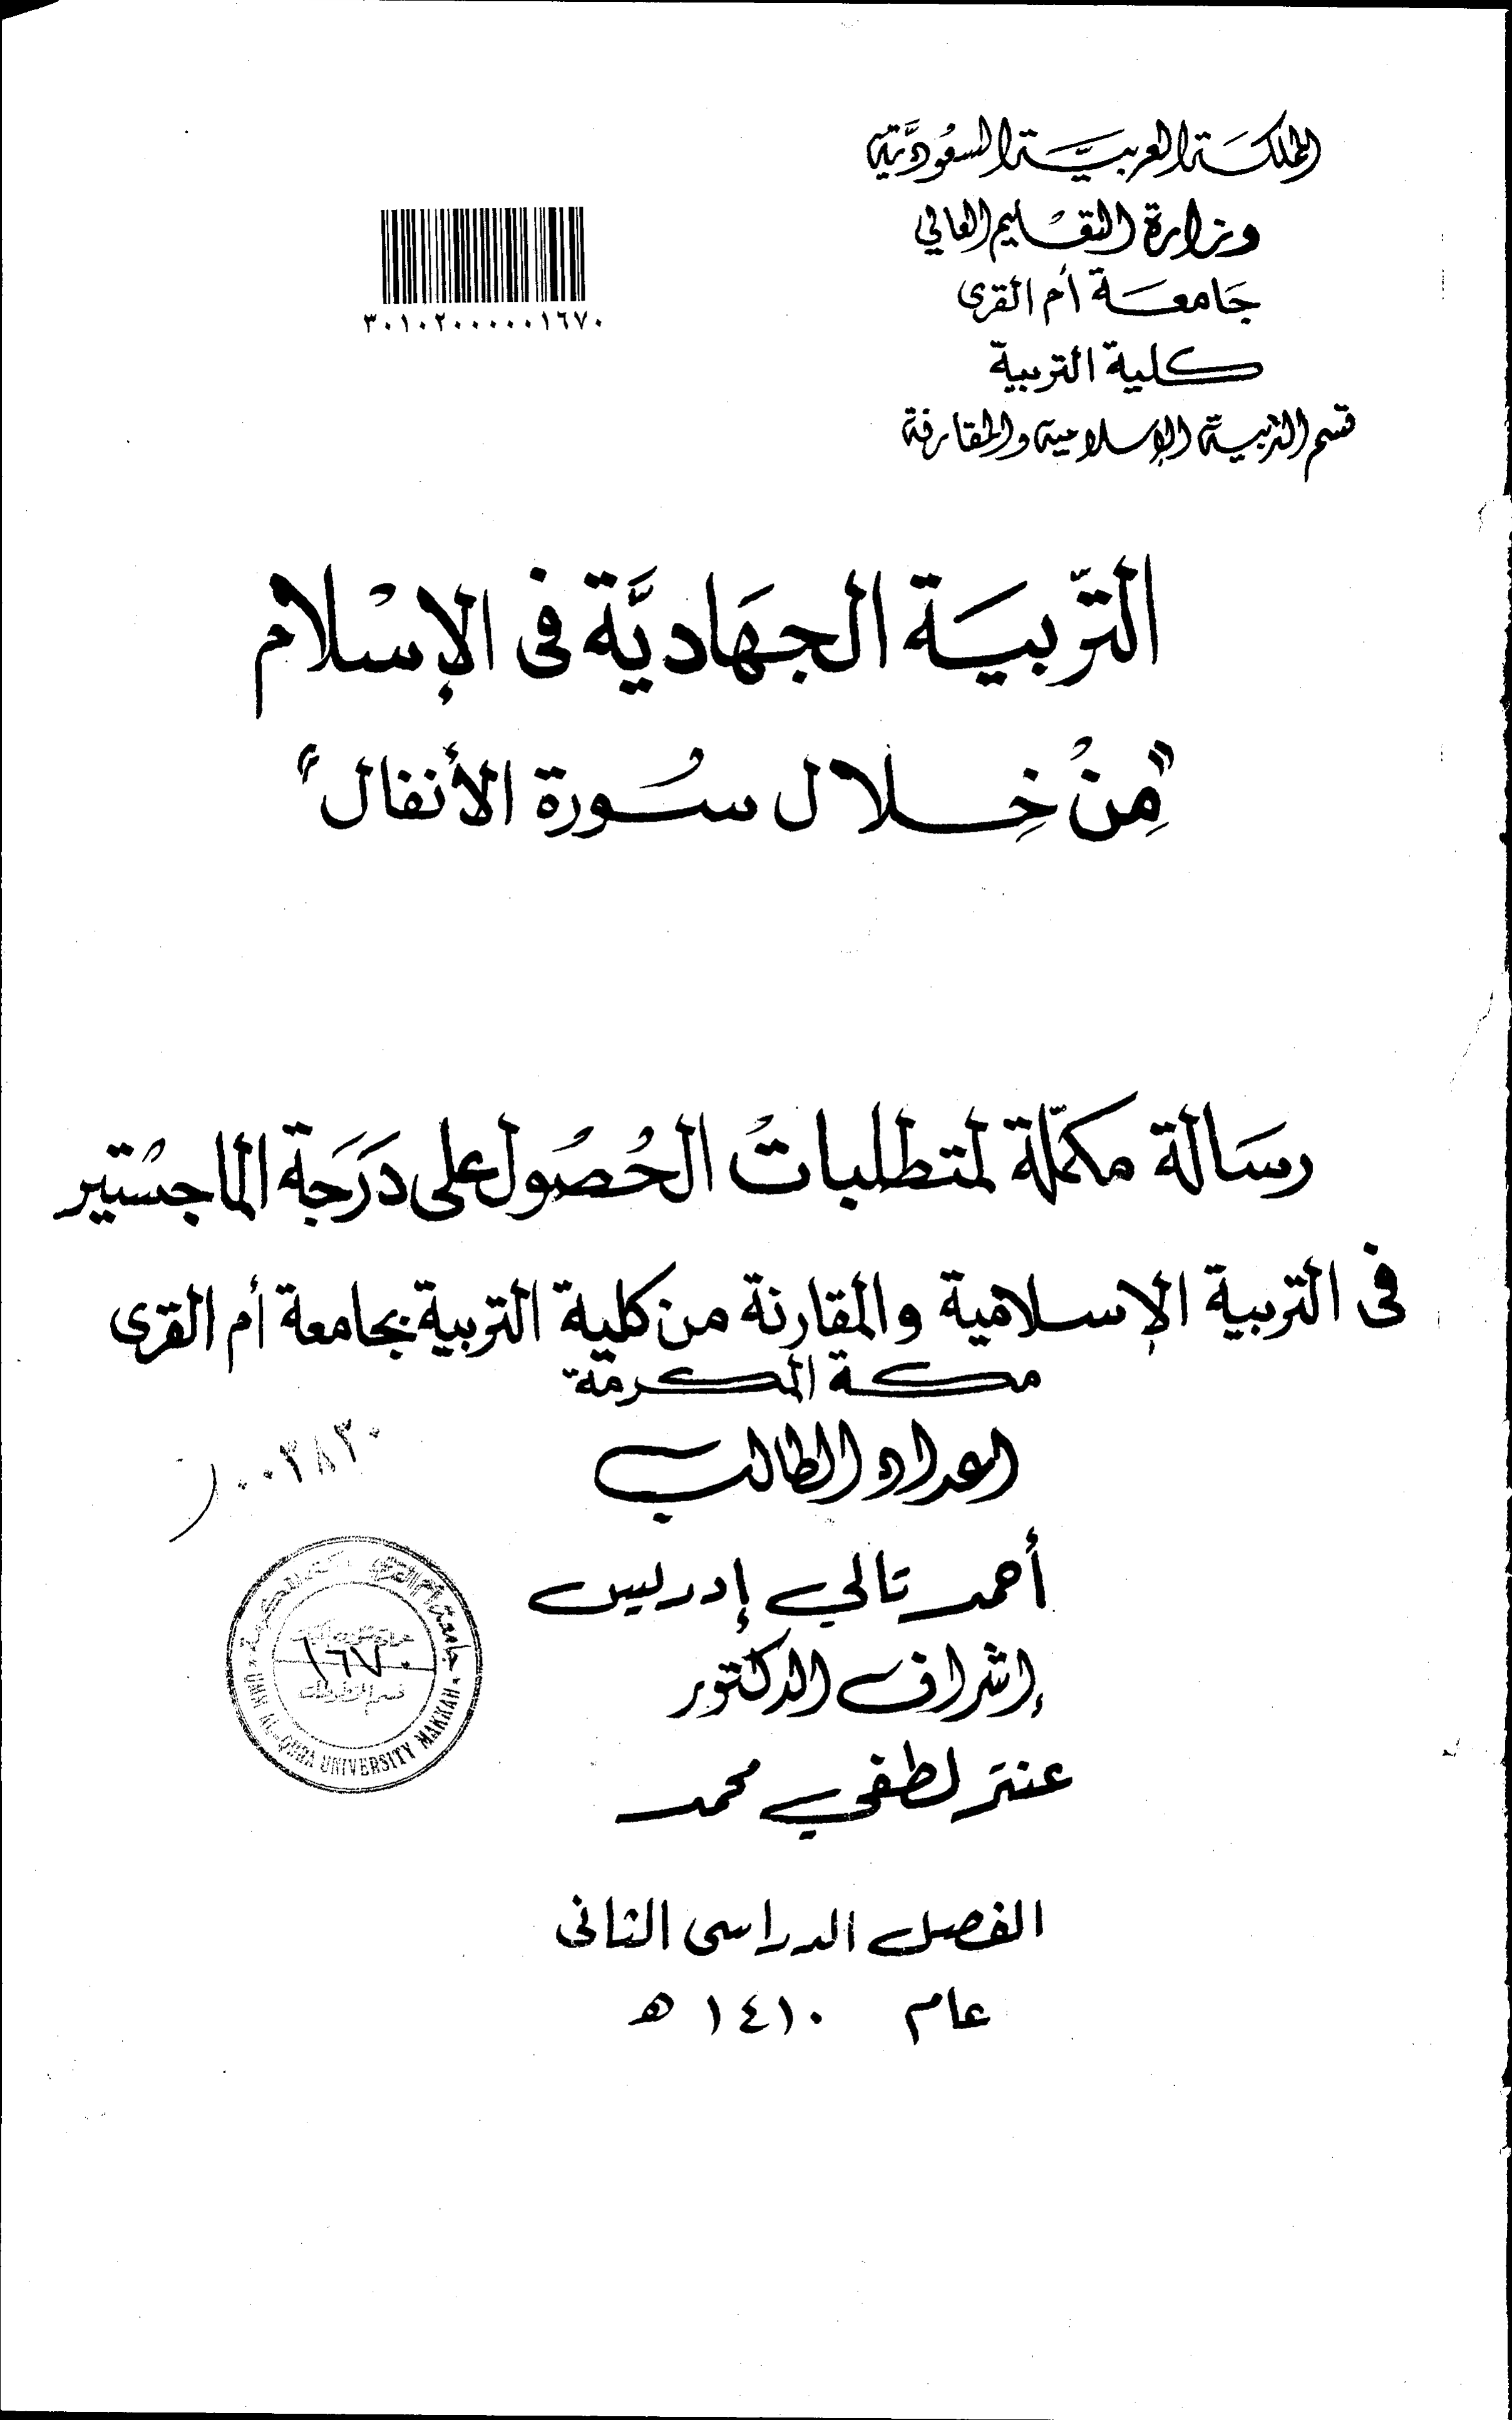 المملكة العربية السعودية
وزارة التعليم العالي
جامعة أم القرى
كلية التربية
قسم التربية الإسلامية والمقارنة
٣٠١٠٢٠٠٠٠٠١٦٧٠
التّربيَة الجهَاديَّة فى الإسْلام
"مِنْ خِلال سُورة الأنفال"
رسَالة مكمّلة لمتطلبات الحُصُول على دَرَجة الماجسْتير
فى التربية الإسلامية والمقارنة من كلية التربية بجامعة أم القرى
مكة المكرمة
اعداد الطالب
٠٠٣٨٣٠
أحمد تالي إدريس
إشراف الدكتور
عنتر لطفي محمد
جامعة أم القرى
١٦٧٠
UMM AL-QURA UNIVERSITY MAKKAH
الفصل الدراسى الثانى
عام ١٤١٠ ه